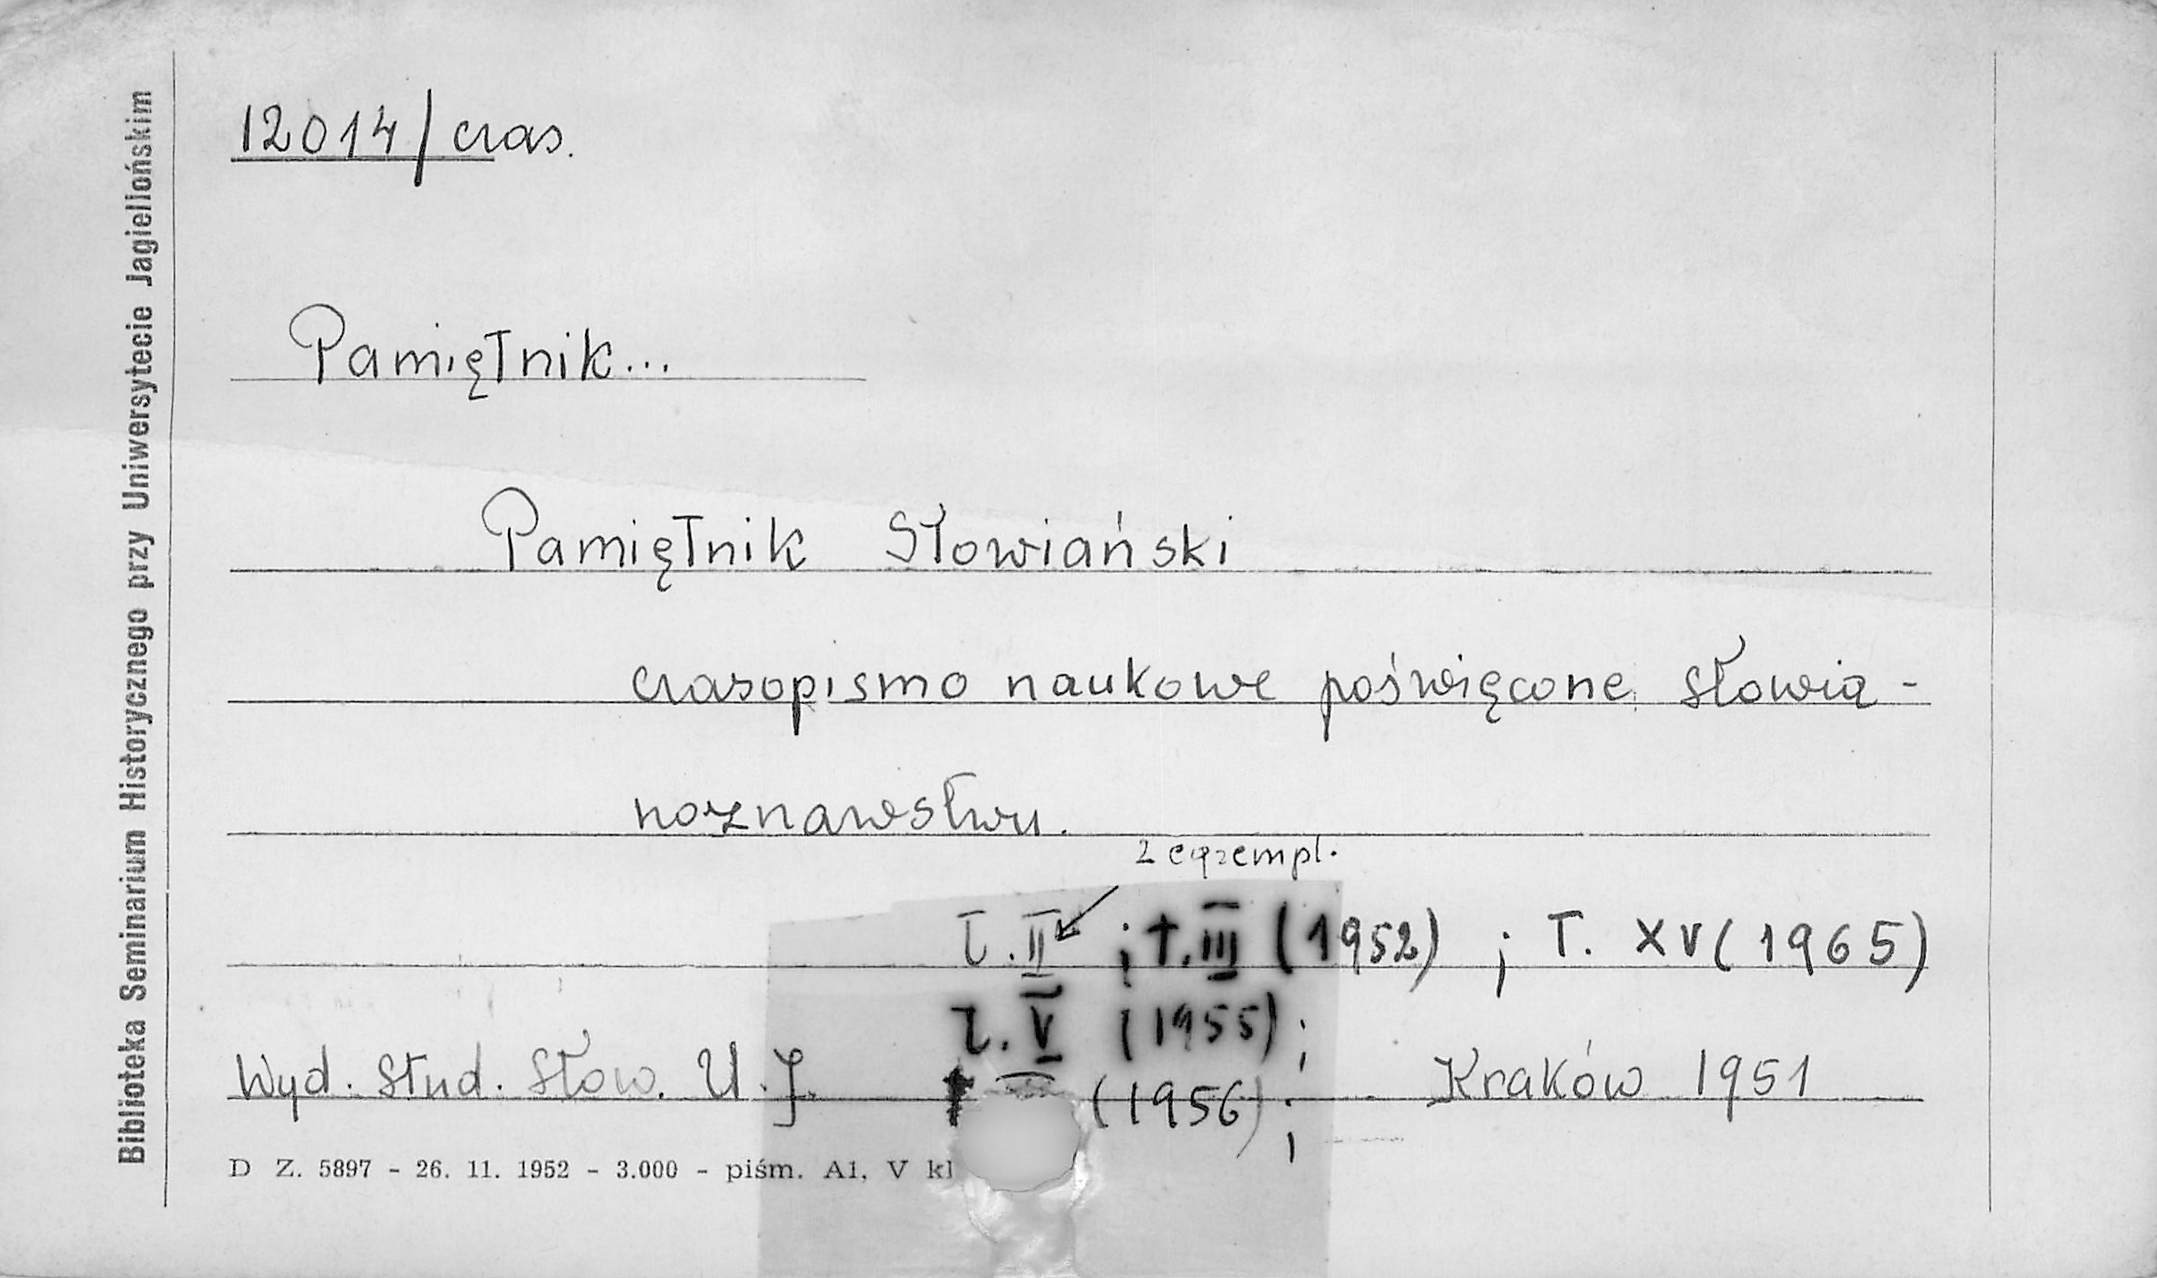 Biblioteka Seminarium Historycznego przy Uniwersytecie Jagiellońskim
12014/czas.
Pamiętnik...
Pamiętnik Słowiański
czasopismo naukowe poświęcone słowia-
noznawstwu.
2 egzempl.
t. II ; t. III (1952) ; T. XV (1965)
t. V (1955) ;
Wyd. Stud. Słow. U. J. t (1956) ; Kraków 1951
D Z. 5897 - 26. 11. 1952 - 3.000 - piśm. A1, V kl